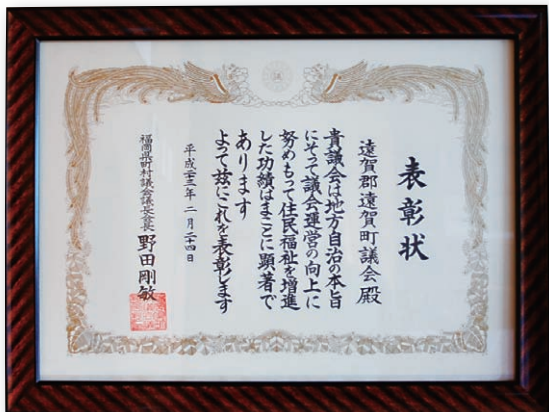 表彰状
遠賀郡遠賀町議会殿
貴議会は地方自治の本旨
にそって議会運営の向上に
努めもって住民福祉を増進
した功績はまことに顕著で
あります
よって茲にこれを表彰します
平成二十三年二月二十四日
福岡県町村議会議長会会長 野田剛敏